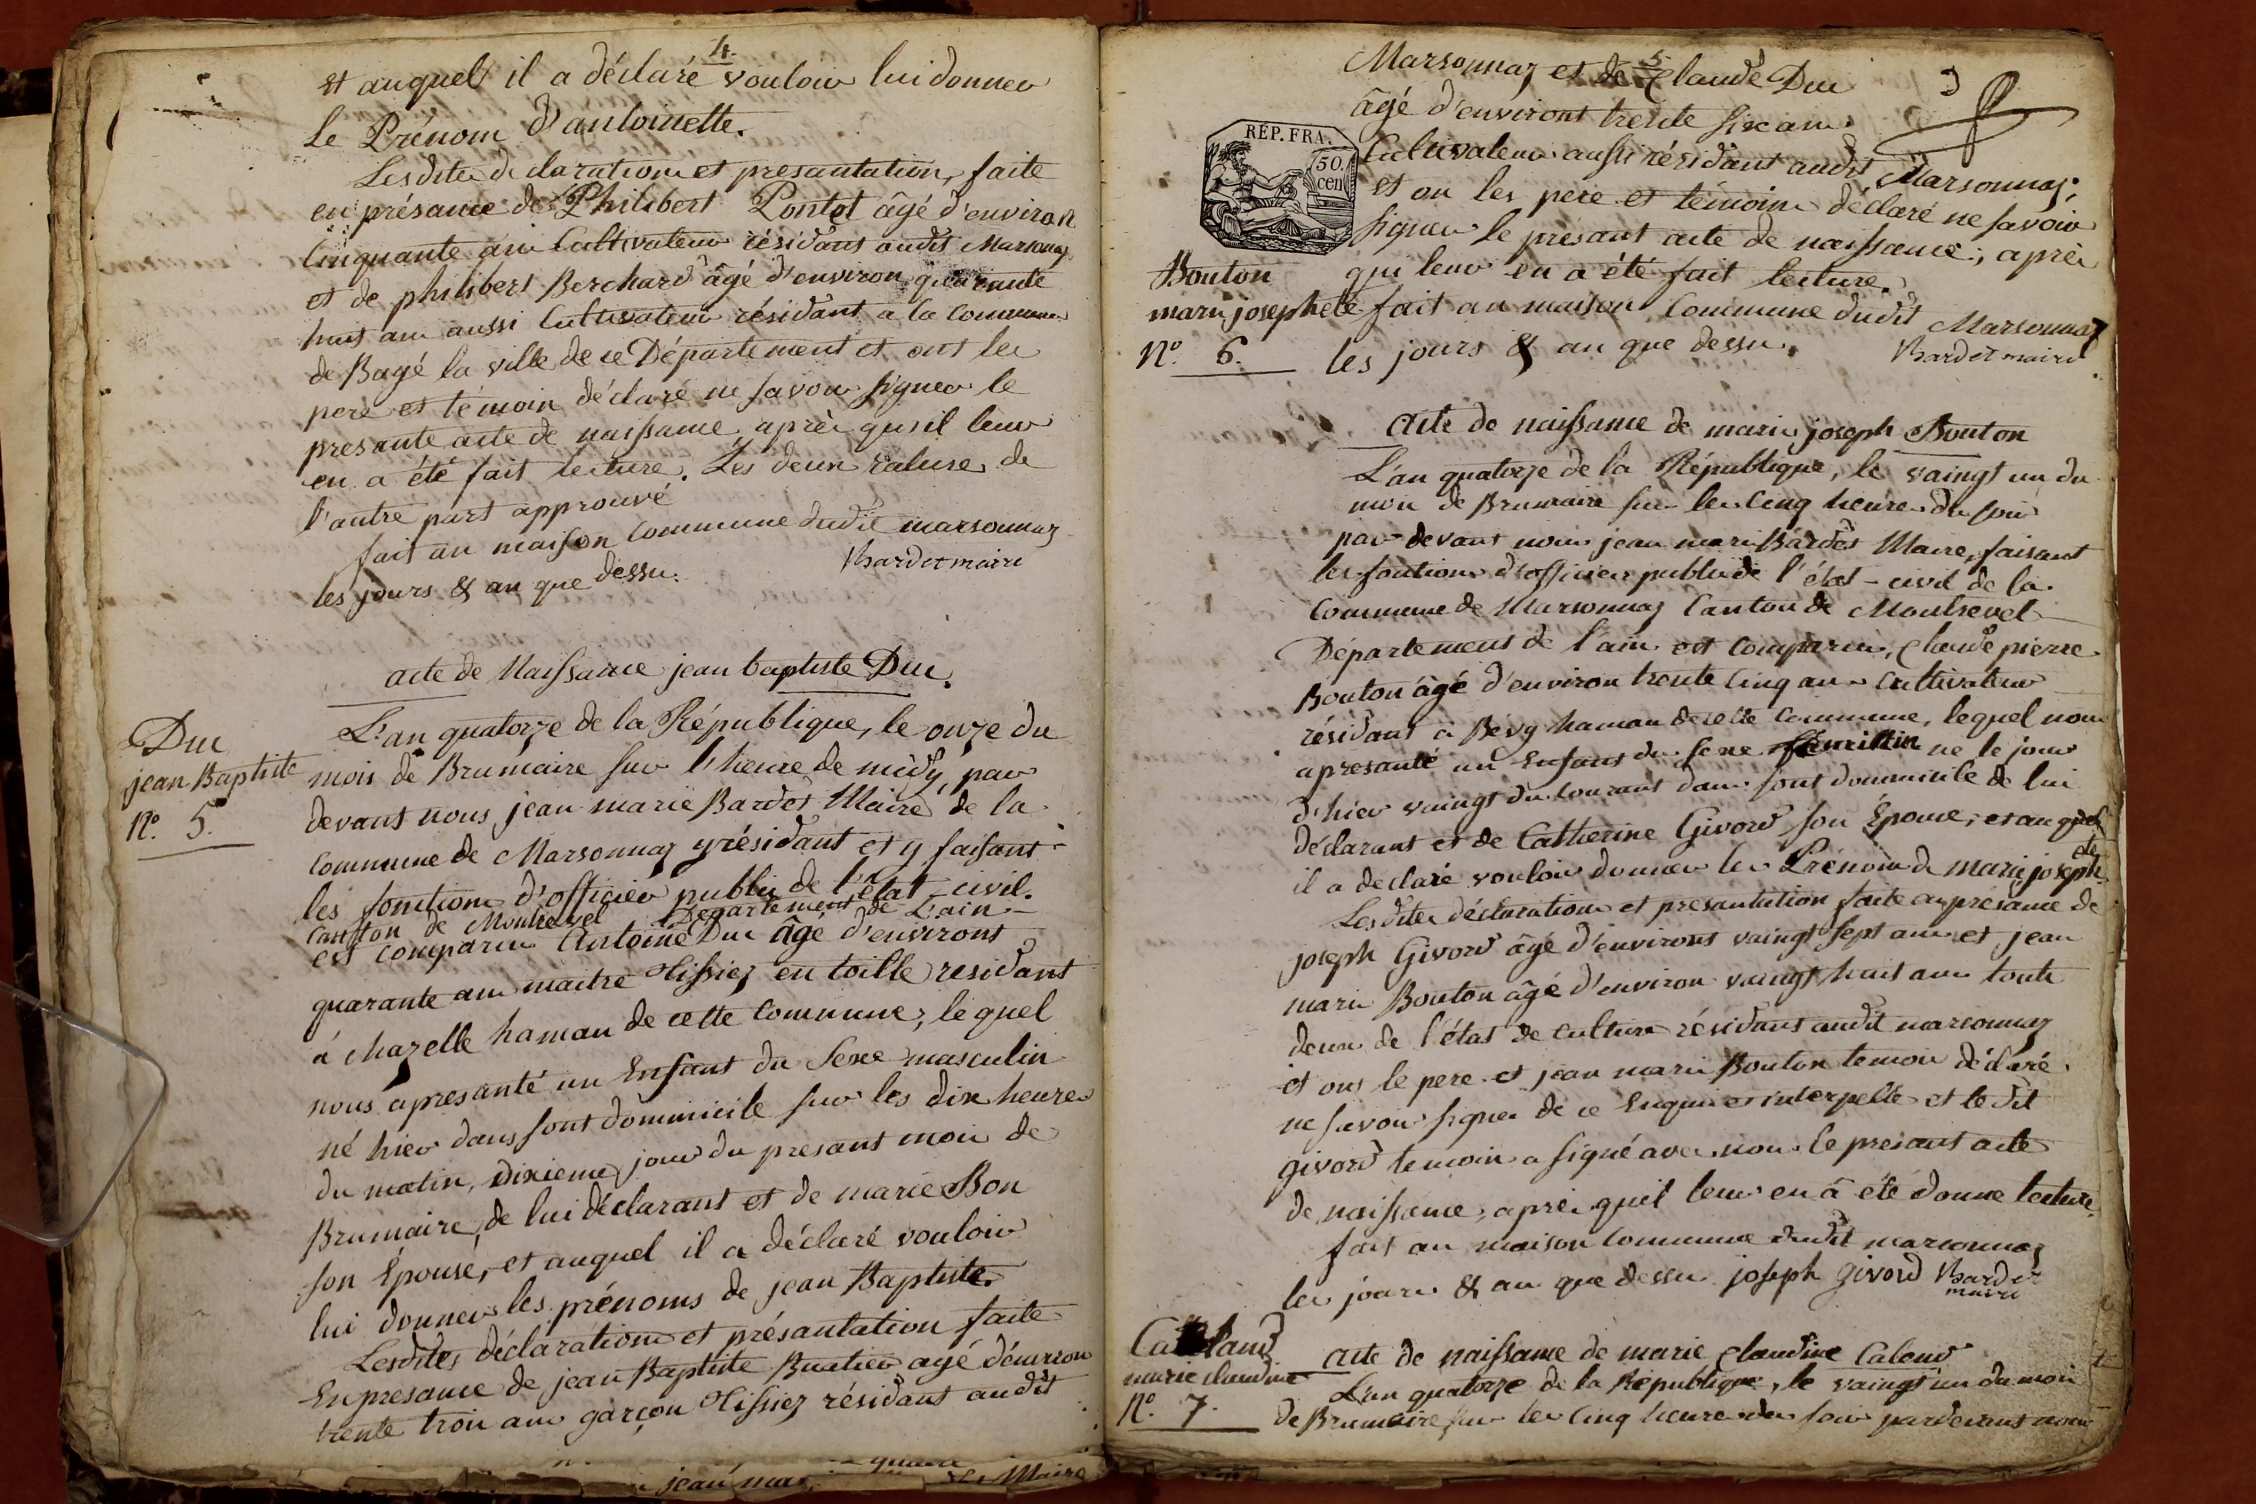 4.
et auquel il a déclaré vouloir lui donner
le Prénom d'antoinette.
Lesdites déclaration et presantation, faite
en présance de Philibert Pontet âgé d'environ
Cinquante ans Cultivateur résidant audit Marsonnaz
et de philibert Berchard âgé d'environ quarante
huit ans aussi Cultivateur résidant a la Commune
de Bagé la ville de ce Département et ont les
pere et témoin déclaré ne savoir signer le
presante acte de naissance après qu'il leur
en a été fait lecture. Les deux ratures de
l'autre part approuvé
fait au maison Commune dudit marsonnaz
les jours & an que dessu.
Bardet maire
acte de Naissance jean baptiste Duc.
Duc
jean Baptiste
N.º 5.
L'an quatorze de la République, le onze du
mois de Brumaire sur l'heure de midy, par
devant nous jean marie Bardet Maire de la
Commune de Marsonnaz y résidant et y faisant
les fonction d'officier public de l'état-civil.
Canton de Montrevel Département de L'ain
est comparu Antoine Duc âgé d'environs
quarante ans maitre tissiez en toille résidant
á Mazelle haman de cette Commune, lequel
nous apresanté un Enfant du Sexe masculin
né hier dans sont dommicile sur les dix heures
du matin, dixieme jour du presant mois de
Brumaire, de lui déclarant et de marie Bon
son Épouse, et auquel il a déclaré vouloir
lui donner les prénoms de jean Baptiste.
Lesdites déclaration et présantation faite
En presance de jean Baptiste Buatier agé d'environ
trente trois ans garçon tissiez résidant audit
jean mar
Maire
5
Marsonnaz et de Claude Duc
âgé d'environt trente six ans
Cultivateur aussi résidant audit Marsonnaz;
et on les pere et témoins déclaré ne savoir
signer le présant acte de naissance; après
qui leur en a été fait lecture.
fait au maison Commune dudit Marsonnaz
les jours & an que dessu.
Bardet maire
RÉP. FRA.
50.
cen
Bouton
marie josephete
N.º 6.
Acte de naissance de marie joseph Bouton
L'an quatorze de la République, le vaingt un du
mois de Brumaire sur les Cinq heures du soir
par devant nous jean marie Bardet Maire, faisant
les fontions d'officier public de l'état-civil de la
Commune de Marsonnaz Canton de Montrevel
Département de l'ain est Comparu, Claude pierre
Bouton âgé d'environ trente Cinq ans Cultivateur
résidant à Bévy haman de cette Commune, lequel nous
apresanté un Enfant du sexe ne le jour
d'hier vaingt du courant dans sont dommicile de lui
déclarant et de Catherine Givord son Épouse; et auquel
il a declaré vouloir donner les Prénoms de marie joseph
ete
Lesdites déclaration et presantation faite anprésance de
joseph Givord âgé d'environt vaingt sept ans et jean
marie Bouton âgé d'environ vaingt huit ans toute
deux de l'état de culture résidant audit marsonnaz
et ont le pere et jean marie Bouton temoin déclaré
ne savoir signer de ce Enquis et interpellé et le dit
givord temoin a signé avec nous le presant acte
de naissance, après quil leur en â été donné lecture.
fait au maison Commune dudit marsonnaz
les jours & an que dessu joseph givord Bardet
maire
marie claudine
N.º 7.
Acte de naissance de marie Claudine Caland
L'an quatorze de la République, le vaingt un du mois
de Brumaire sur les Cinq heure du soir pardevant nous